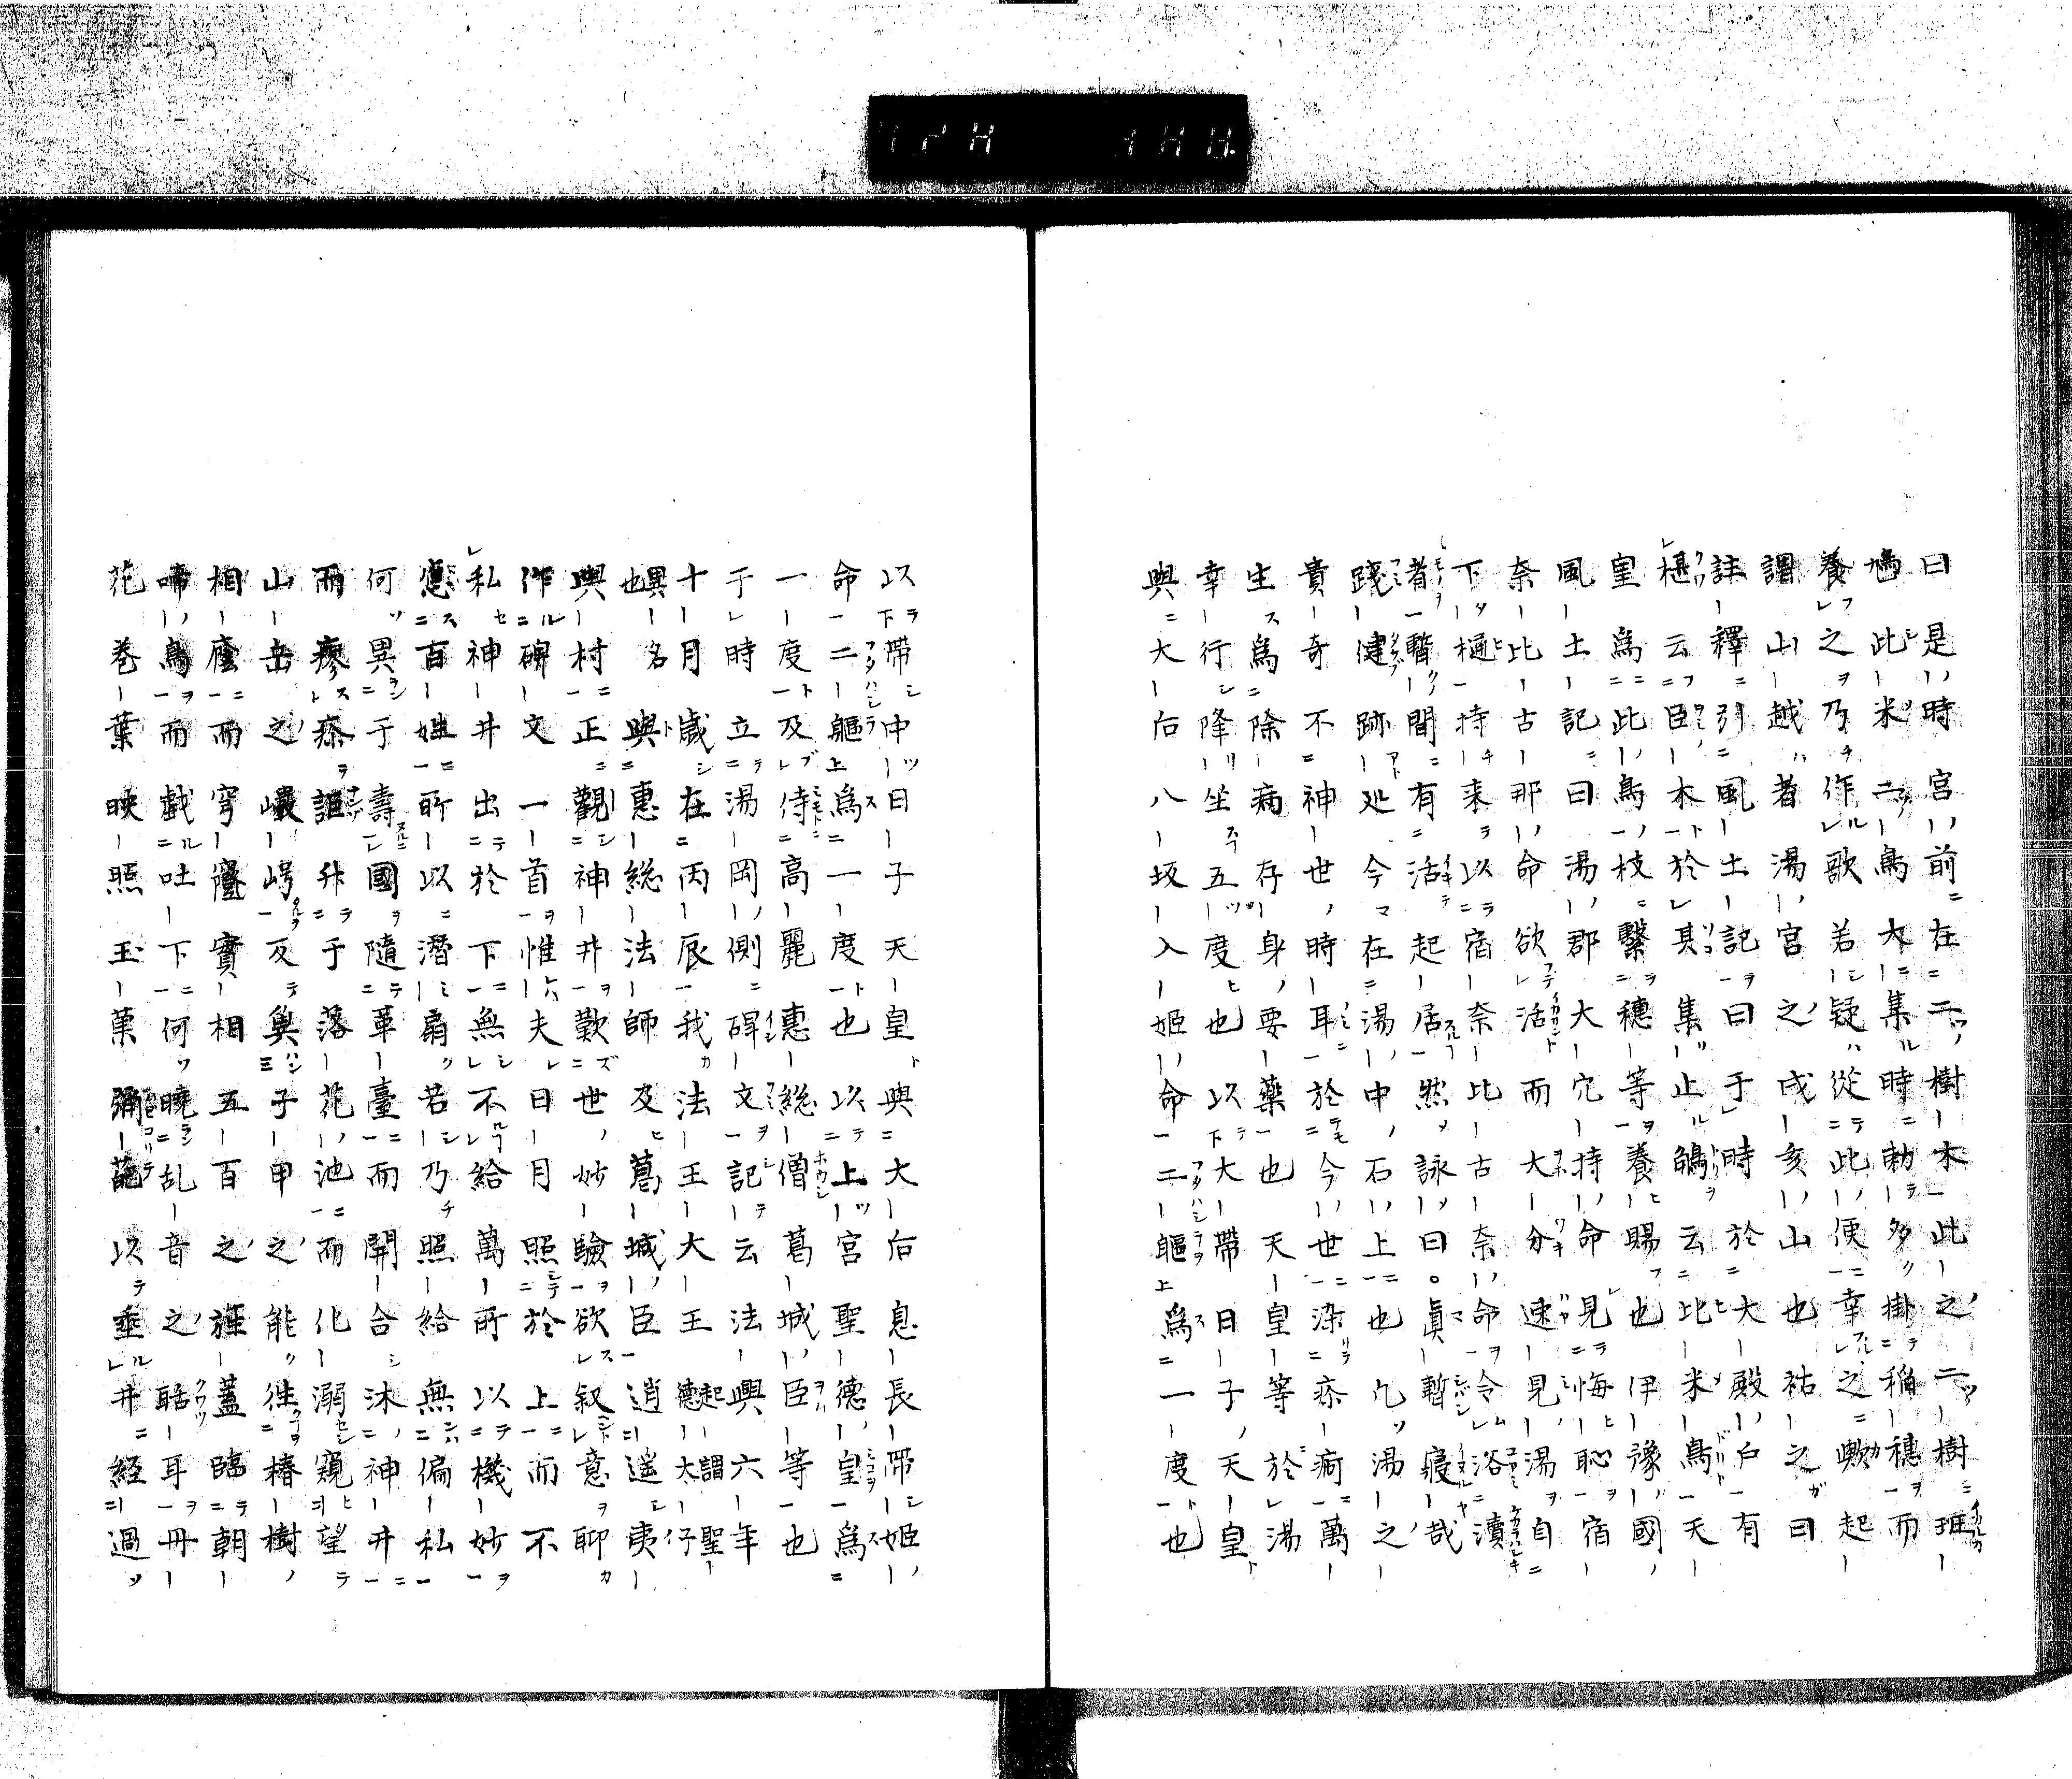 曰是時宮前在二樹木此之二樹班
鳩此米二鳥大集時勅多掛稲穗而
養之乃作歌若疑從此便幸之歟起
謂山越者湯宮之戌亥山也祐之曰
註釋引風土記曰于時於大殿戸有
椹云臣木於其集止鵤云比米鳥天
皇為此鳥枝繫穗等養賜也伊豫國
風土記曰湯郡大穴持命見悔恥宿
奈比古那命欲活而大分速見湯自
下樋持来以宿奈比古奈命令浴瀆
者暫間有活起居然詠曰。眞暫寢哉
踐健跡処今在湯中石上也凡湯之
貴奇不神世時耳於今世染疹痾萬
生為除病存身要藥也天皇等於湯
幸行降坐五度也以大帶日子天皇
與大后八坂入姫命二軀為一度也
以帶中日子天皇與大后息長帶姫
命二軀為一度也以上宮聖德皇為
一度及侍高麗惠総僧葛城臣等也
于時立湯岡側碑文記云法興六年
十月歳在丙辰我法王大王起謂聖德太仔
異名也與惠総法師及葛城臣逍遥夷
與村正觀神井歎世妙驗欲叙意聊
作碑文一首惟夫日月照於上而不
私神井出於下無不給萬所以機妙
應百姓所以潛扇若乃照給無偏私
何異于壽國隨華臺而開合沐神井
而瘳疹詎舛于落花池而化溺窺望
山岳之巖崿反兾子甲之能往椿樹
相廕而穹窿實相五百之旌蓋臨朝
啼鳥而戯吐下何曉乱音之聒耳丹
花巻葉映照玉菓彌葩以垂井経過